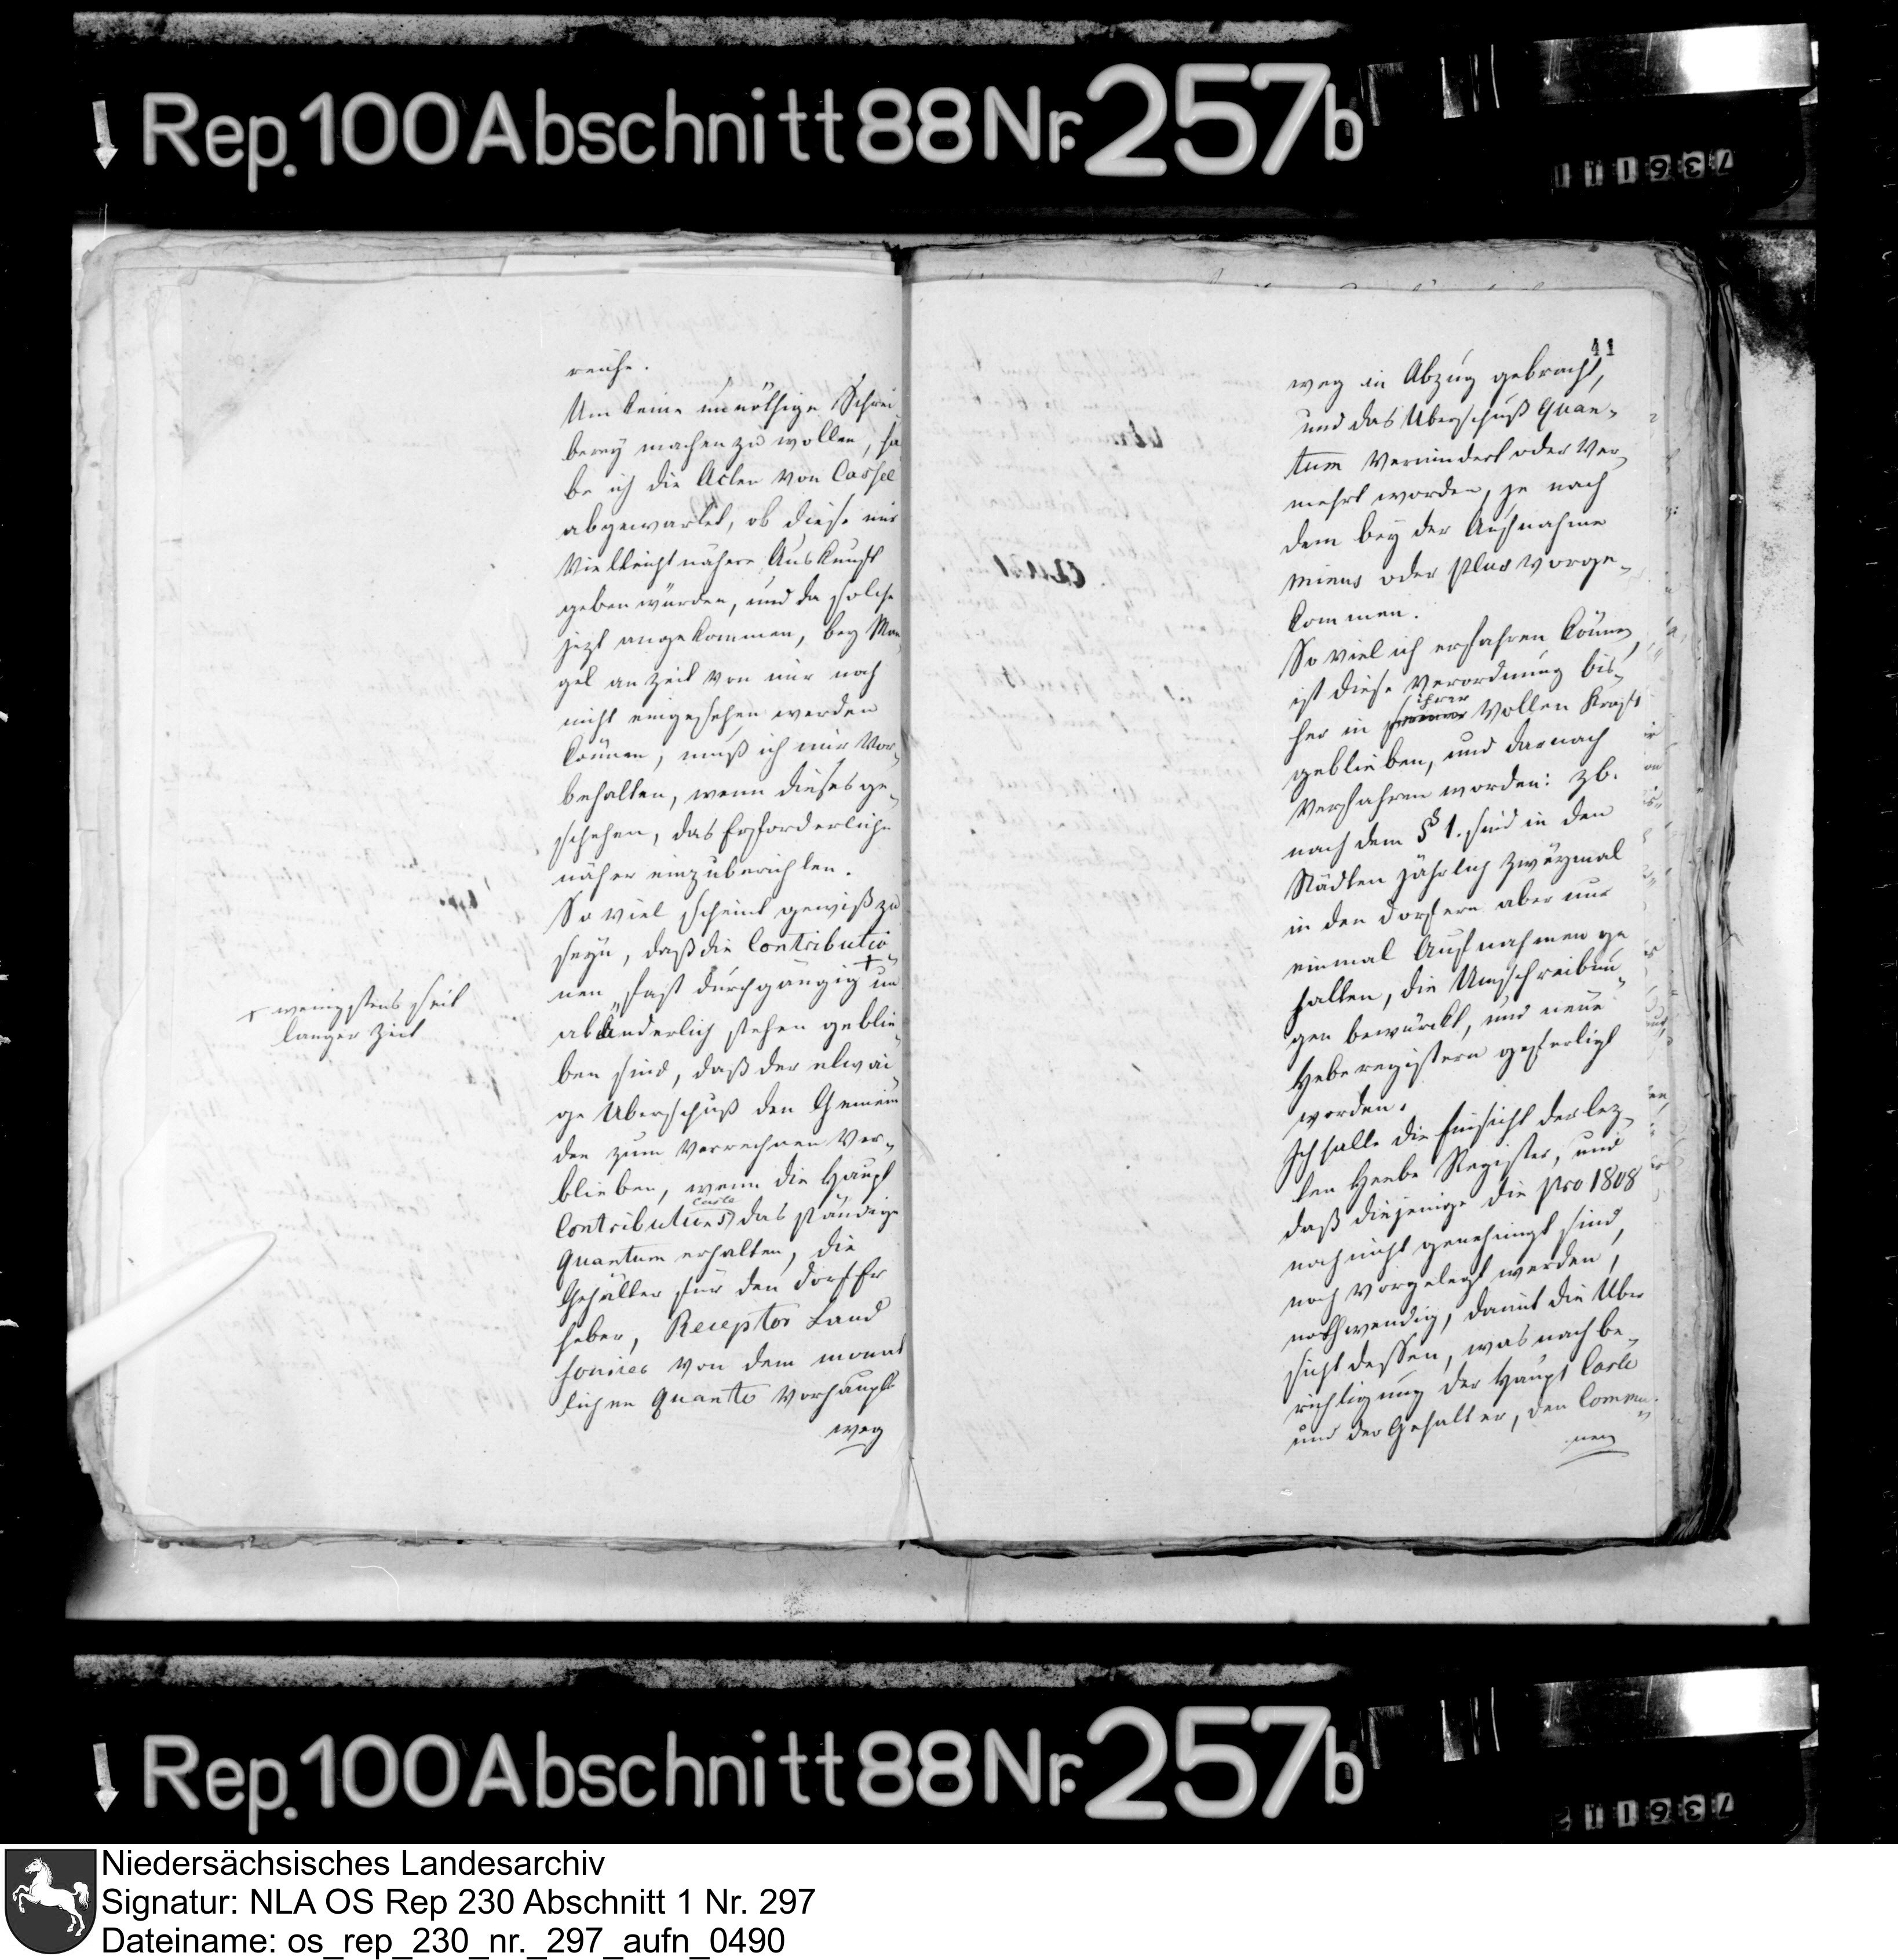 Rep. 100 Abschnitt 88 Nr. 257b
reiche.
Um keine unnöthige Schrei
berey machen zu wollen, ha
be ich die Acten von Cassel
abgewartet, ob diese mir
vielleicht nähere Auskunft
geben würden, und da solche
jezt angekommen, bey Man
gel an Zeit von mir noch
nicht eingesehen werden
können, muß ich mir vor-
behalten, wenn dieses ge-
schehen, das Erforderliche
näher einzuberichten.
So viel scheint gewiß zu
seyn, daß die Contributio
nen fast durchgängig + un
abänderlich stehen geblie-
ben sind, daß der etwai
ge Uberschuß den Gemein
den zum Verrechnen ver-
blieben, wenn die Haupt
Contributions Casse das ständige
Quantum erhalten, die
Gehälter für den Dorf Er
heber, Receptor Land
von dem monat
lichen Quanto vorhaupt
weg
+ wenigstens seit
langer Zeit
41
weg in Abzug gebracht,
und das Uberschuß Quan-
tum vermindert oder ver-
mehrt worden, je nach
dem bey der Aufnahme
minus oder plus vorge-
kommen.
So viel ich erfahren können,
ist diese Verordnung bis-
her in ihrer vollen Kraft
geblieben, und darnach
verfahren worden: zb.
nach dem § 1. sind in den
Städten jährlich zweymal
in den Dorfern aber nur
einmal Aufnahmen ge
halten, die Umschreibun-
gen bewürckt, und neue
Heberegistern gefertigt
worden.
Ich halte die Einsicht der lez-
ten Heebe Register, und
daß diejenige die pro 1808
noch nicht genehmigt sind,
noch vorgelegt werden,
nothwendig, damit die Uber
sicht dessen, was nach be-
richtigung der Haupt Casse
und der Gehalter, den Commu-
nen
Rep. 100 Abschnitt 88 Nr. 257b
Niedersächsisches Landesarchiv
Signatur: NLA OS Rep 230 Abschnitt 1 Nr. 297
Dateiname: os_rep_230_nr._297_aufn_0490